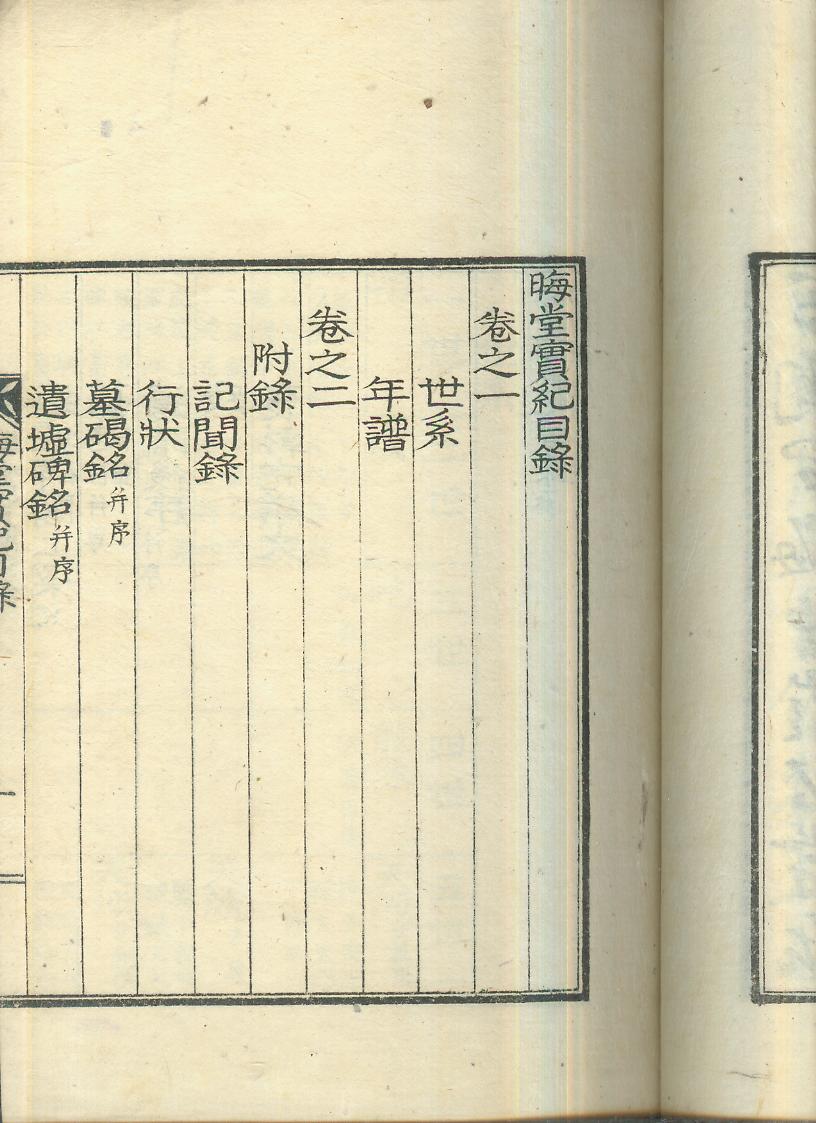 晦堂實紀目錄
卷之一
世系
年譜
卷之二
附錄
記聞錄
行狀
墓碣銘 幷序
遺墟碑銘 幷序